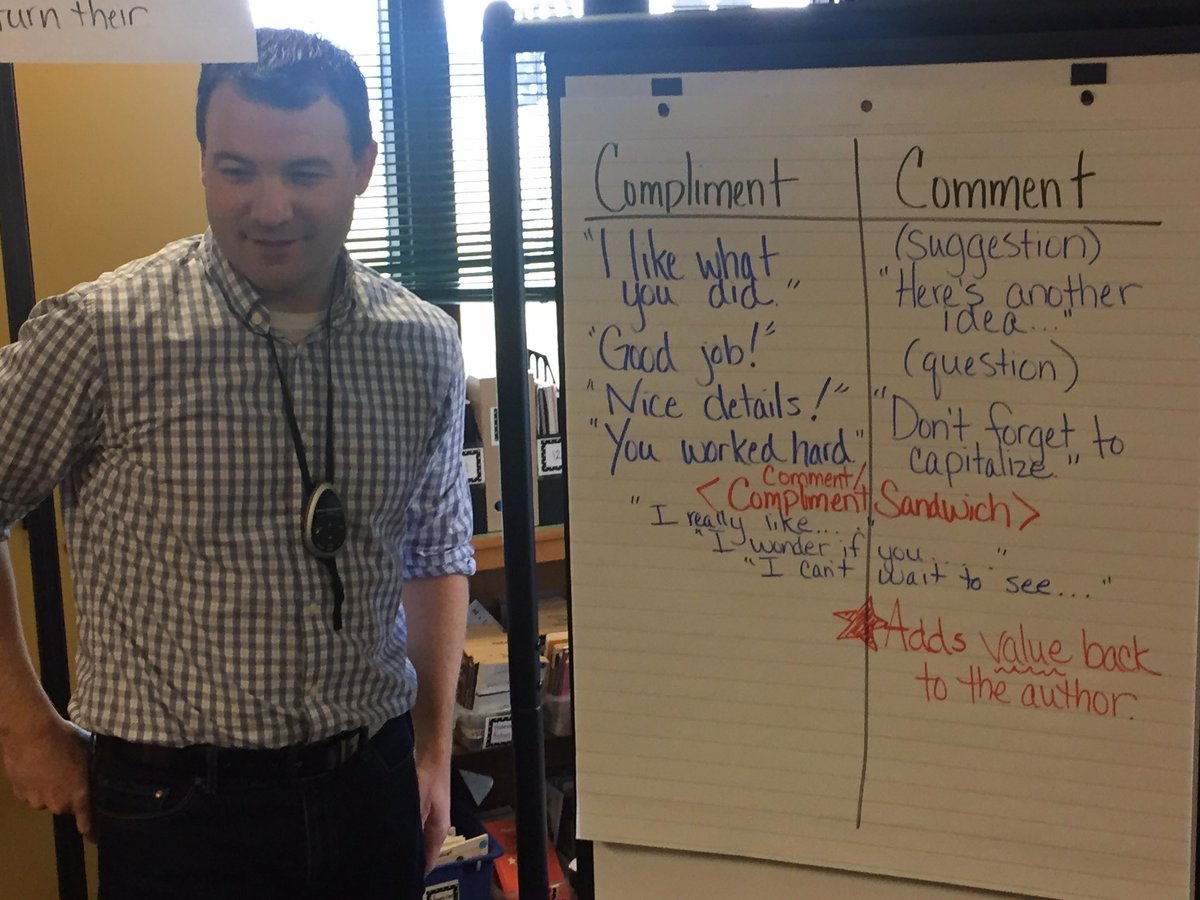 urn their
Compliment
"I like what
you did."
"Good job!"
"Nice details!"
"You worked hard."
Comment
(suggestion)
"Here's another
idea..."
(question)
"Don't forget to
capitalize."
Comment/
<Compliment Sandwich>
"I really like....."
"I wonder if you....."
"I can't wait to see..."
Adds value back
to the author.